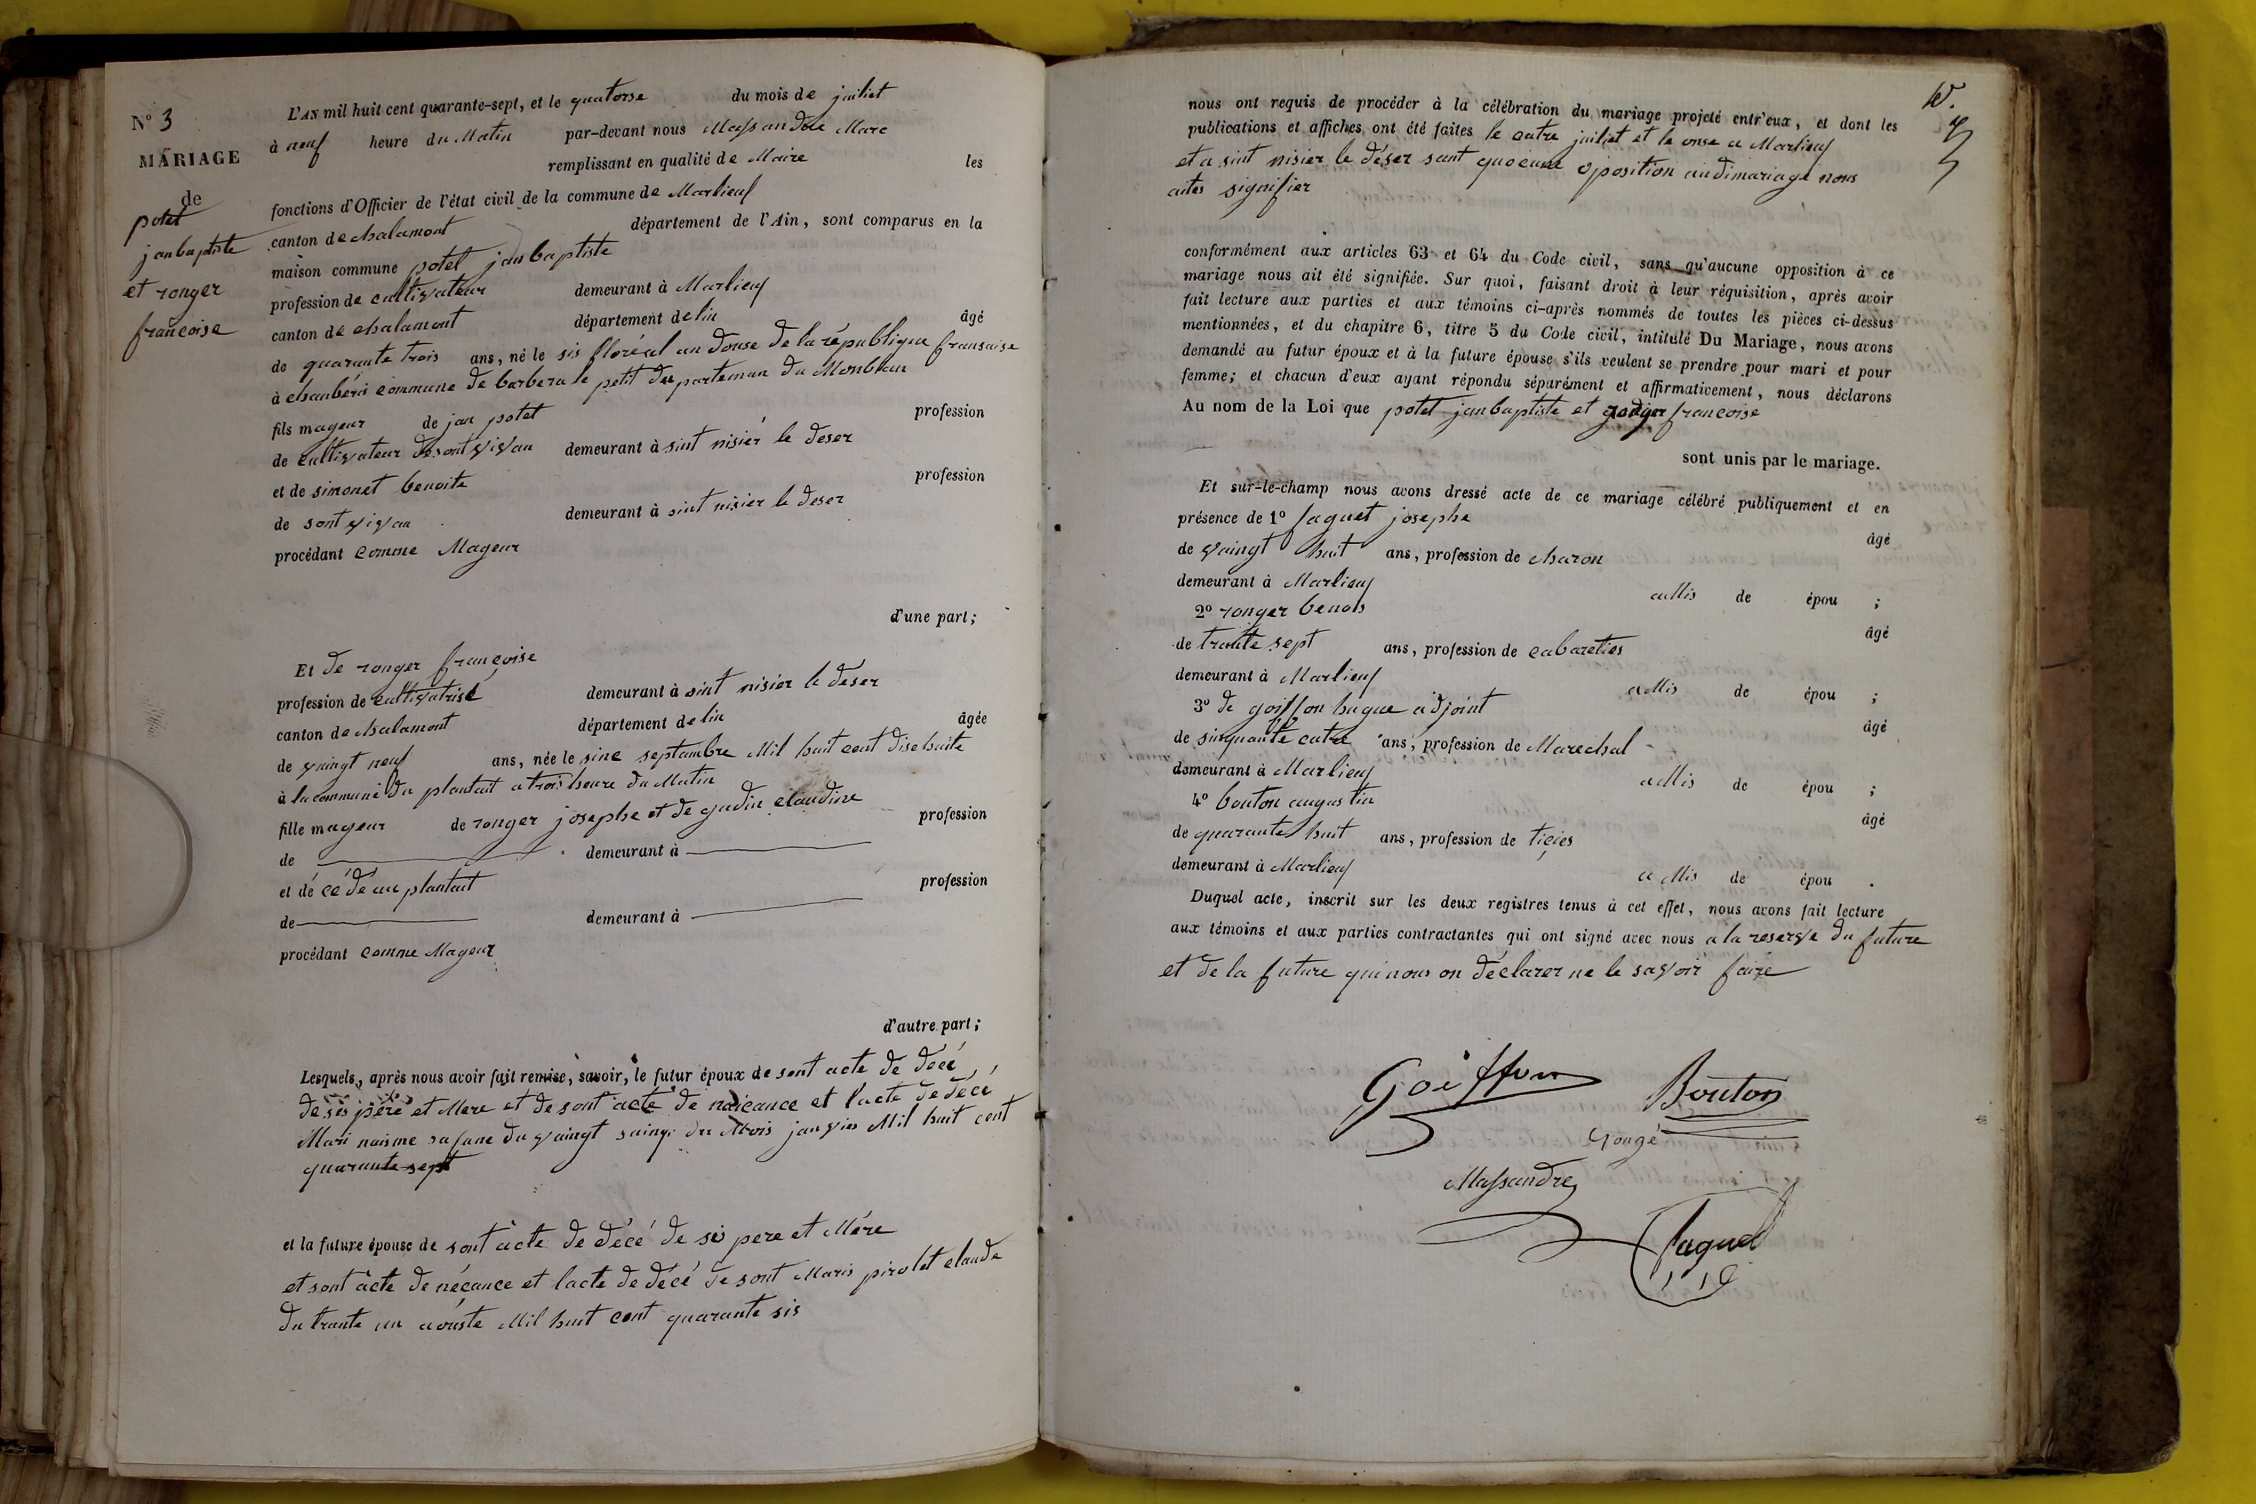 N° 3
MARIAGE
de
potet
janbaptiste
et ronger
françoise
L'AN mil huit cent quarante-sept, et le quatorse du mois de juiliet
à neuf heure du Matin par-devant nous Massandre Marc
remplissant en qualité de Maire les
fonctions d'Officier de l'état civil de la commune de Marlieuf
canton de chalamont département de l'Ain, sont comparus en la
maison commune potet janbaptiste
profession de cultivateur demeurant à Marlieuf
canton de chalamont département de lin âgé
de quarante trois ans, né le sis floréal an douse de la république fransaise
à chanbéri commune de barbera le petit département du Monblan
fils mageur de jan potet profession
de cultivateur de sont vivan demeurant à sint nisiér le deser
et de simonet benoite profession
de sont vivan demeurant à sint nisier le deser
procédant comme Mageur
d'une part;
Et de ronger françoise
profession de cultivatrise demeurant à sint nisier le déser
canton de chalamont département de lin âgée
de vaingt neuf ans, née le sine septambre Mil huit cent disehuite
à la commune du plantait a trois heure du Matin
fille mageur de ronger josephe et de gudin claudine profession
de demeurant à
et dé cédé au plantait profession
de demeurant à
procédant comme Mageur
d'autre part;
Lesquels, après nous avoir fait remise, savoir, le futur époux de sont acte de décé
de sis pére et Mere et de sont acte de naicance et l'acte de décé
Mari naisme safane du vaingt saingt du Mois janvier Mil huit cent
quarante sept
et la future épouse de sont acte de décé de sis pere et Mére
et sont acte de nécance et lacte de décé de sont Maris pirolet claude
du trante un aouste Mil huit cent quarante sis
10.
nous ont requis de procéder à la célébration du mariage projeté entr'eux, et dont les
publications et affiches ont été faites le catre juiliet et le onse a Marlieuf
et a sint nisier le déser sant quocune oposition audimariage nous
aites signifier
conformément aux articles 63 et 64 du Code civil, sans qu'aucune opposition à ce
mariage nous ait été signifiée. Sur quoi, faisant droit à leur réquisition, après avoir
fait lecture aux parties et aux témoins ci-après nommés de toutes les pièces ci-dessus
mentionnées, et du chapitre 6, titre 5 du Code civil, intitulé Du Mariage, nous avons
demandé au futur époux et à la future épouse s'ils veulent se prendre pour mari et pour
femme; et chacun d'eux ayant répondu séparément et affirmativement, nous déclarons
Au nom de la Loi que potet janbaptiste et françoise
sont unis par le mariage.
Et sur-le-champ nous avons dressé acte de ce mariage célébré publiquement et en
présence de 1° faguet josephe
âgé
de vaingt huit ans, profession de charon
demeurant à Marlieuf aMis de épou ;
2° ronger benois
âgé
de trante sept ans, profession de cabareties
demeurant à Marlieuf aMis de épou ;
3° de goiffon hugue adjoint
âgé
de sinquante catre ans, profession de Marechal
demeurant à Marlieuf aMis de épou ;
4° bouton augustin
âgé
de quarante huit ans, profession de ticies
demeurant à Marlieuf aMis de épou .
Duquel acte, inscrit sur les deux registres tenus à cet effet, nous avons fait lecture
aux témoins et aux parties contractantes qui ont signé avec nous a la reserve du future
et de la future qui nous on déclarer ne le savoir faire
Goiffon
Bouton
Massandre
faguet